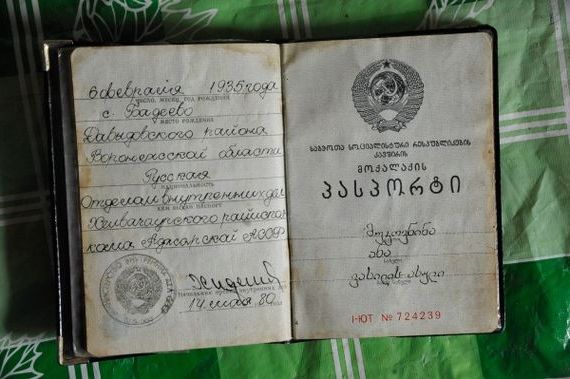 6 февраля 1935 года
число, месяц, год рождения
с. Бадеево
место рождения
Давыдовского района
Воронежской области
Русская
национальность
Отделом внутренних дел
кем выдан паспорт
Хелвачаурского райиспол-
кома Аджарской АССР
14 мая 80
საბჭოთა სოციალისტური რესპუბლიკების
კავშირის
მოქალაქის
ᲞᲐᲡᲞᲝᲠᲢᲘ
ანა
ვასილის ასული
I-ЮТ № 724239